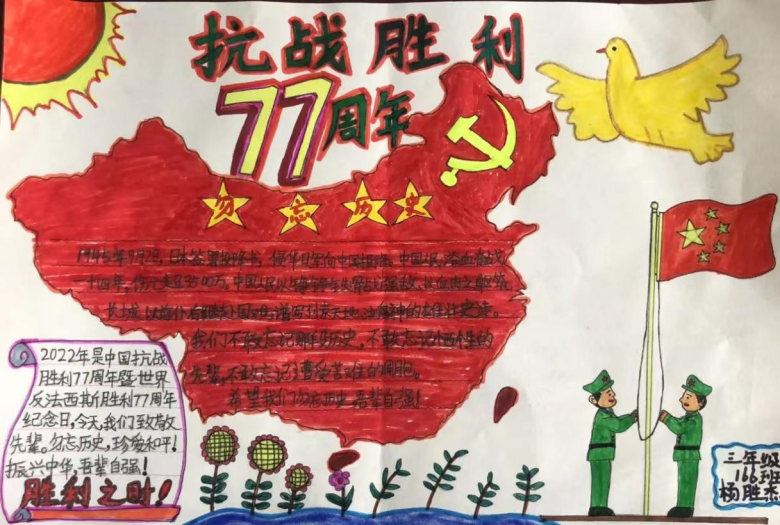 抗战胜利
77周年
勿忘历史
1945年9月2日,日本签署投降书,
中国人民浴血奋战
十四年,伤亡超3500万,中国人民以
我们不敢忘记那段历史,不敢忘记牺牲的
先辈,不敢忘记遭受苦难的同胞。
希望我们勿忘历史,吾辈自强!
2022年是中国抗战
胜利77周年暨世界
反法西斯胜利77周年
纪念日,今天,我们致敬
先辈。勿忘历史,珍爱和平!
振兴中华,吾辈自强!
胜利之时!
三年级
166班
杨胜杰